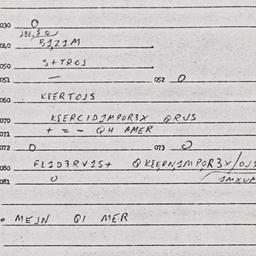 030 0
040 BIZIM
050 S+TROJ
051 — 052 0
060 KSERTOJS
070 KSERCIDIMPOR3X QRUS
071 + = - QH AMER
072 0 073 0
080 FLID3RVIS+ QKSEPNIMPOR3X/OJS
081 0 IMXUM
MEJN QI MER